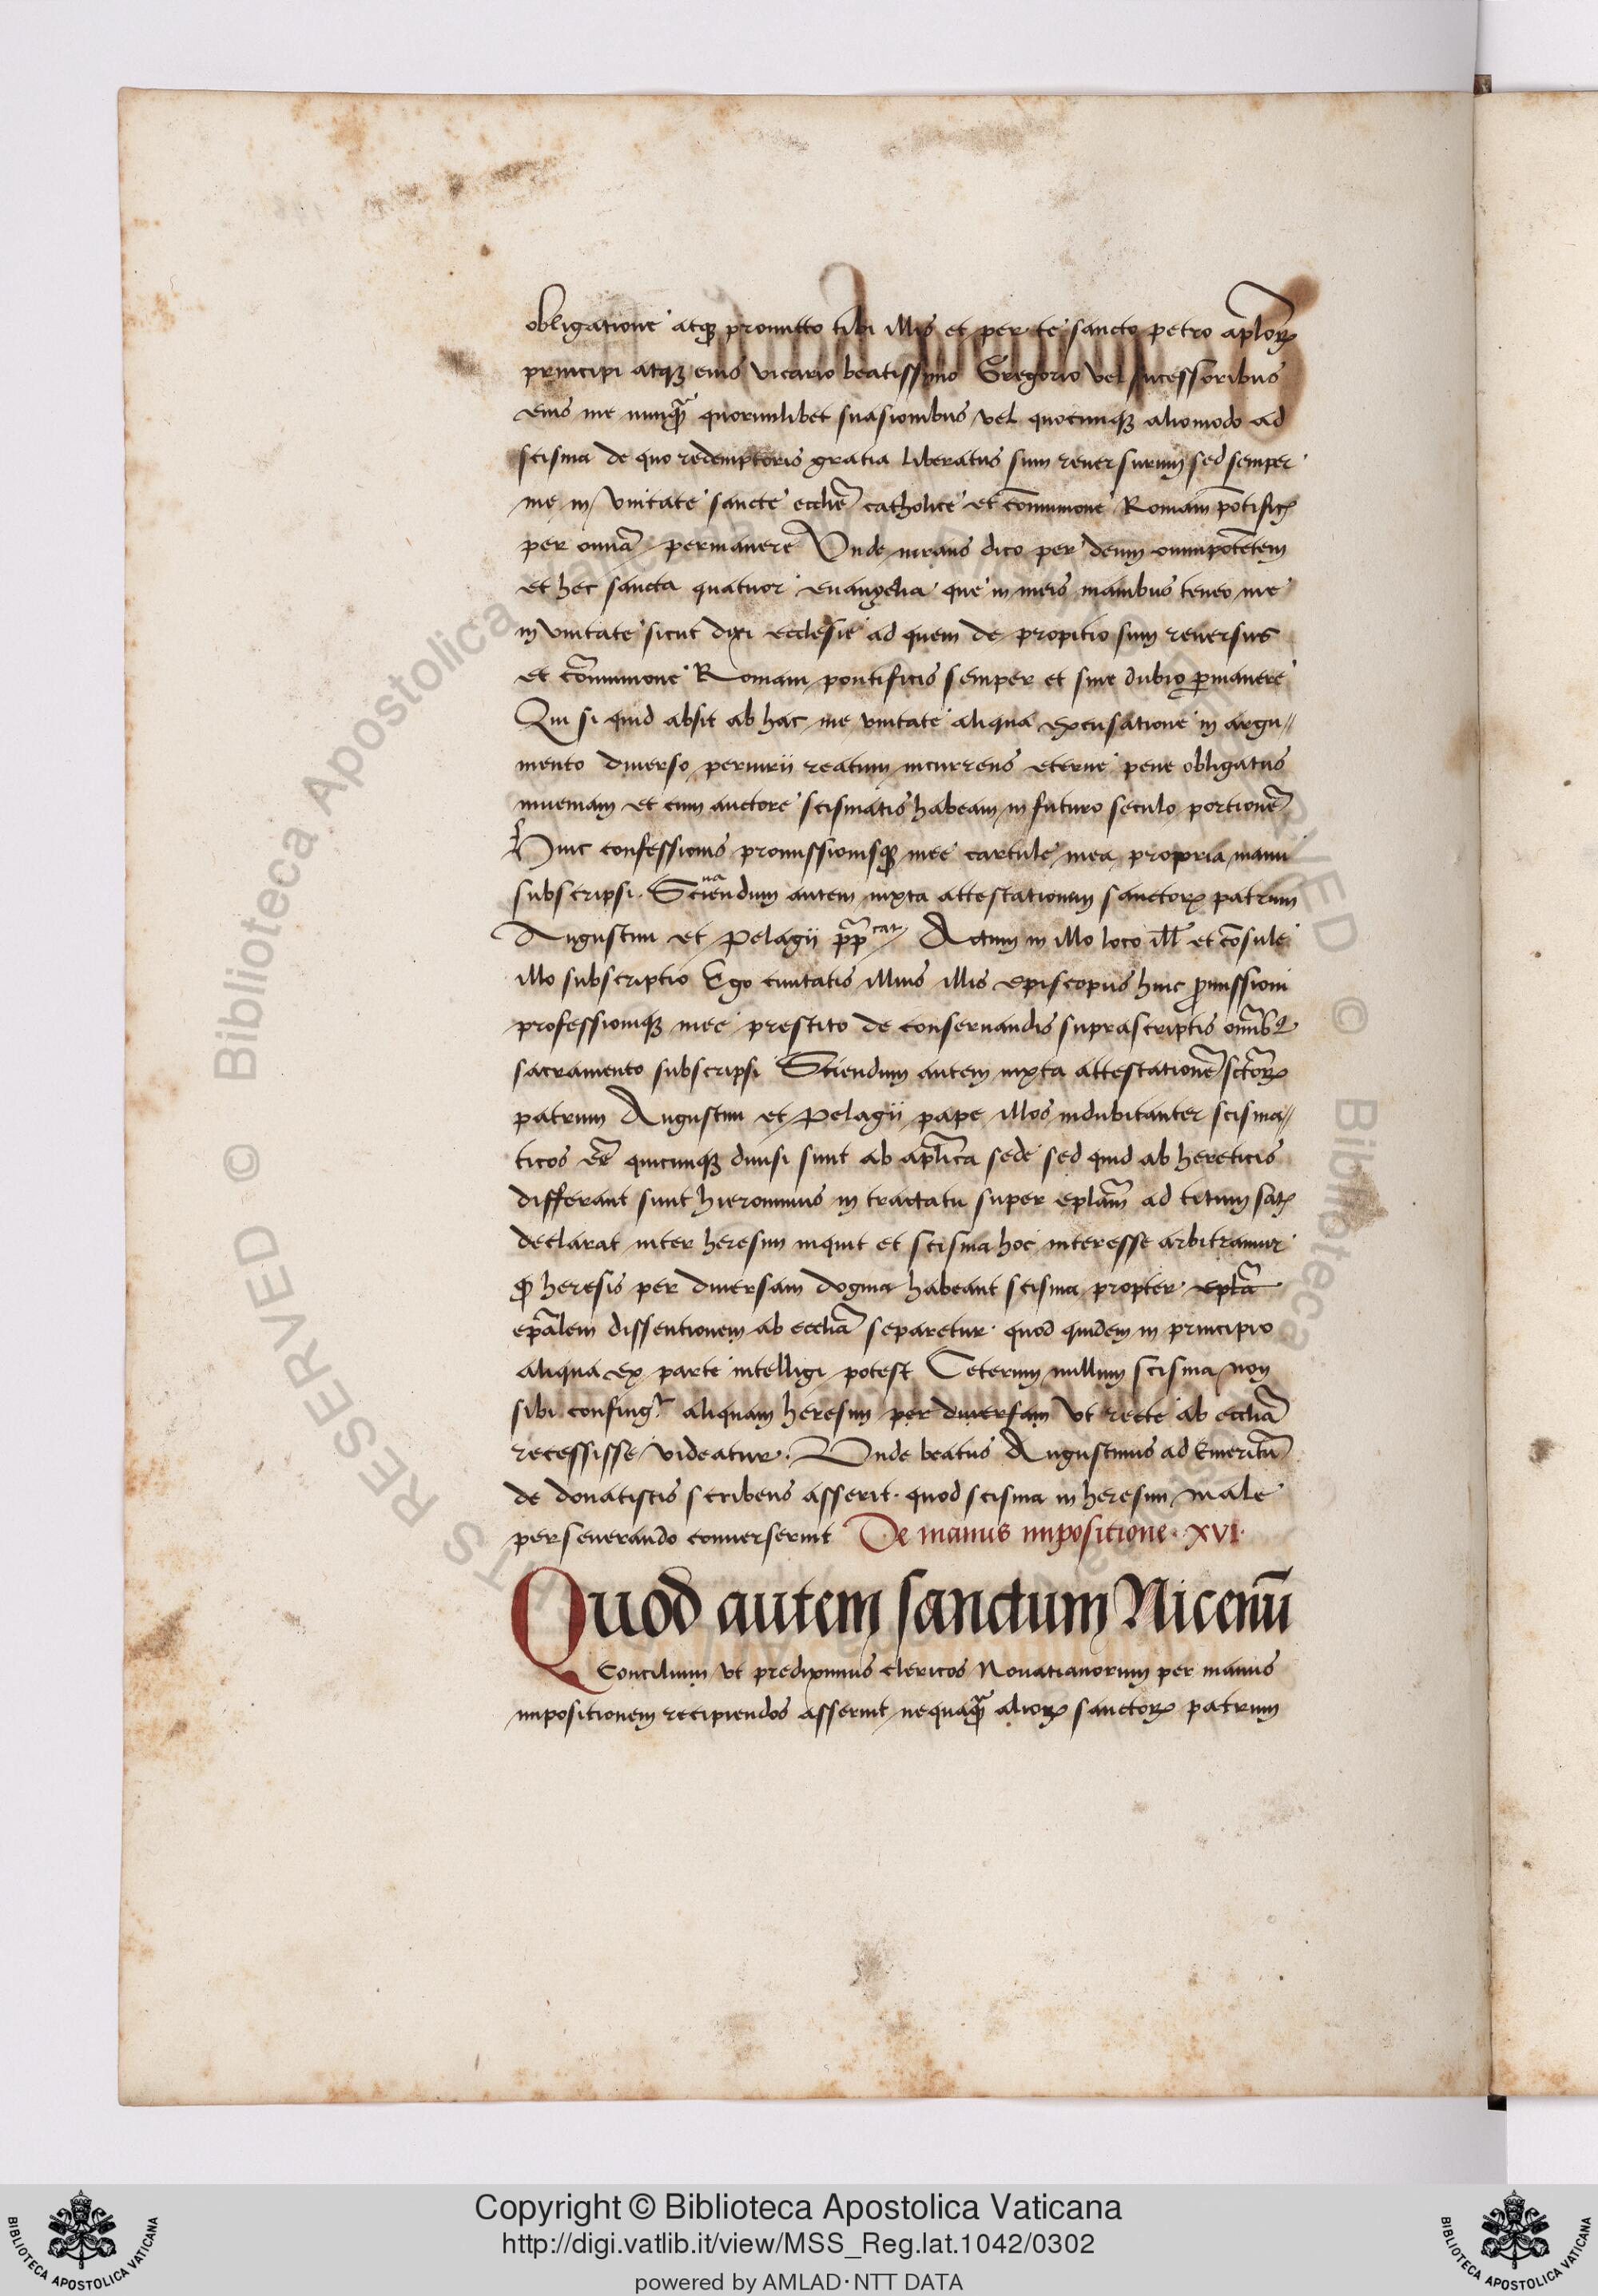 obligatione atqꝫ promitto tibi illis et per te sancto petro aplõꝝ
principi atqꝫ eius vicario beatissimo Gregorio vel sucessoribus
eius me nunꝗ̃ quorumlibet suasionibus vel quocunqꝫ aliomodo ad
scisma de quo redemptoris gratia liberatus sum reuersurum sed semper
me in vnitate sancte ecclie͂ catholice et co͂munione Romani po͂tific̃
per omia͂ permanere Vnde iurans dico per deum omnipote͂tem
et hec sancta quatuor euangelia que in meis manibus teneo me
in vnitate sicut dixi ecclesie ad quem de propitio sum reuersus
et co͂mmunione Romani pontificis semper et sine dubio ꝑmanere
Qui si quid absit ab hac me vnitate aliqua excusatione in argu//
mento diuerso periurii reatum incurrens eterne pene obligatus
inueniam et cum auctore scismatis habeam in futuro seculo portione͂
Huic confessionis promissionisqꝫ mee cartule mea propria manu
subscripsi. Sciendum autem iuxta attestationem sanctoꝝ patrum
na
Augustini et Pelagii pp̃ Actum in illo loco ill̃ et co͂sule
illo subscriptio Ego ciuitatis illius illis episcopus huic ꝓmissioni
professioniqꝫ mee prestito de conseruandis suprascriptis omibꝫ
sacramento subscripsi Sciendum autem iuxta attestatione͂ sctõꝝ
patrum Augustini et Pelagii pape illos indubitanter scisma//
ticos ee͂ quicunqꝫ diuisi sunt ab apl̃ica sede sed quid ab hereticis
differant sunt hieronimus in tractatu super epl̃am ad titum satꝭ
declarat inter heresim inquit et scisma hoc interesse arbitramur
ꝙ heresis per diuersam dogma habeant scisma propter epl̃a
epa͂lem dissentionem ab ecclia͂ separetur quod quidem in principio
aliqua ex parte intelligi potest Ceterum nullum scisma non
sibi confingͥt aliquam heresim per diuersam vt recte ab ecclia͂
recessisse videatur. Vnde beatus Augustinus ad Emeritu͂
de donatistis scribens asserit. quod scisma in heresim male
perseuerando conuerserint De manus impositione. XVI.
Quod autem sanctum Nicenu͂
Concilium vt prediximus clericos Nouatianorum per manus
impositionem recipiendos asserint nequaꝗ̃ alioꝝ sanctoꝝ patrum
Copyright © Biblioteca Apostolica Vaticana
http://digi.vatlib.it/view/MSS_Reg.lat.1042/0302
powered by AMLAD·NTT DATA
BIBLIOTECA APOSTOLICA VATICANA
BIBLIOTECA APOSTOLICA VATICANA